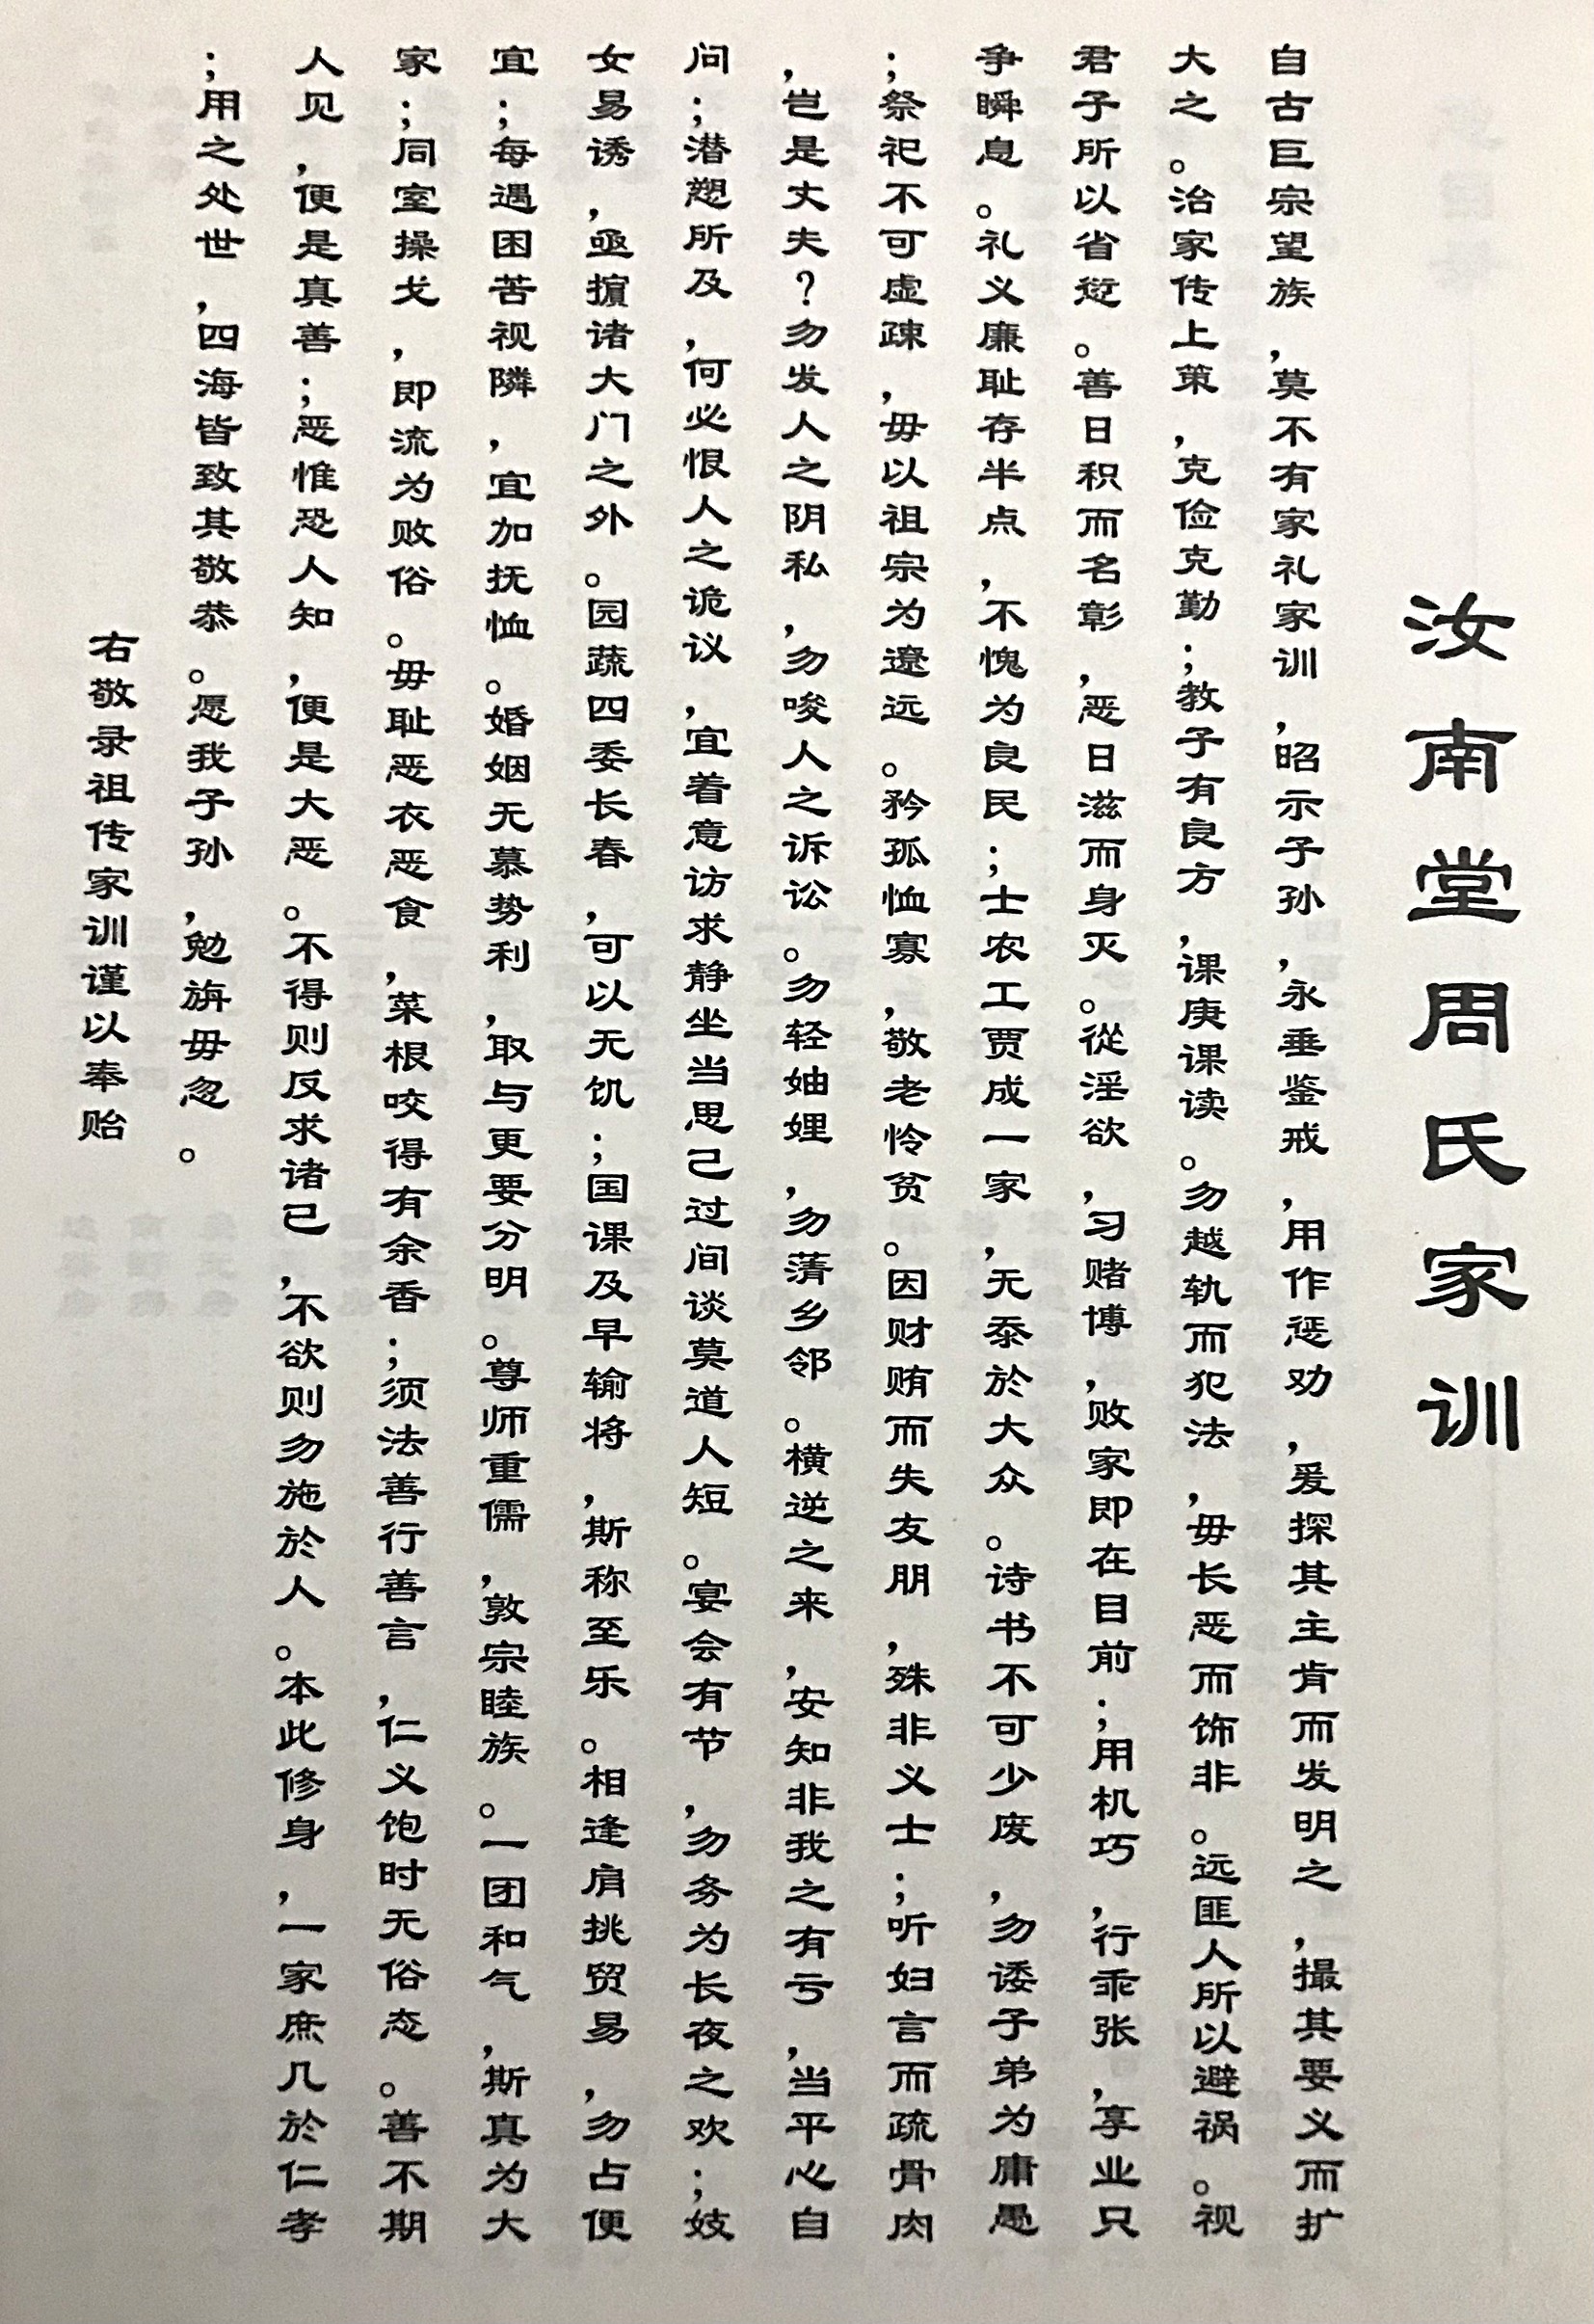 汝南堂周氏家训
自古巨宗望族，莫不有家礼家训，昭示子孙，永垂鉴戒，用作惩劝，爰探其主肯而发明之，撮其要义而扩
大之。治家传上策，克俭克勤；教子有良方，课庚课读。勿越轨而犯法，毋长恶而饰非。远匪人所以避祸。视
君子所以省愆。善日积而名彰，恶日滋而身灭。從淫欲，习赌博，败家即在目前；用机巧，行乖张，享业只
争瞬息。礼义廉耻存半点，不愧为良民；士农工贾成一家，无忝於大众。诗书不可少废，勿诿子弟为庸愚
；祭祀不可虚疎，毋以祖宗为遼远。矜孤恤寡，敬老怜贫。因财贿而失友朋，殊非义士；听妇言而疏骨肉
，岂是丈夫？勿发人之阴私，勿唆人之诉讼。勿轻妯娌，勿薄乡邻。横逆之来，安知非我之有亏，当平心自
问；潜愬所及，何必恨人之诡议，宜着意访求静坐当思己过间谈莫道人短。宴会有节，勿务为长夜之欢；妓
女易诱，亟摈诸大门之外。园蔬四委长春，可以无饥；国课及早输将，斯称至乐。相逢肩挑贸易，勿占便
宜；每遇困苦视隣，宜加抚恤。婚姻无慕势利，取与更要分明。尊师重儒，敦宗睦族。一团和气，斯真为大
家；同室操戈，即流为败俗。毋耻恶衣恶食，菜根咬得有余香；须法善行善言，仁义饱时无俗态。善不期
人见，便是真善；恶惟恐人知，便是大恶。不得则反求诸己，不欲则勿施於人。本此修身，一家庶几於仁孝
；用之处世，四海皆致其敬恭。愿我子孙，勉旃毋忽。
右敬录祖传家训谨以奉贻